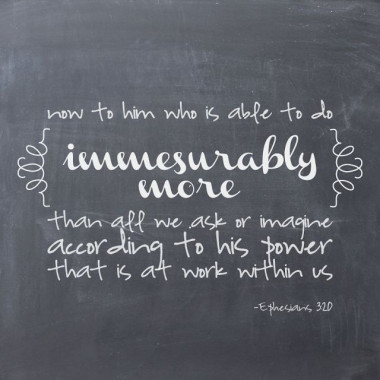 now to him who is able to do
immesurably
more
than all we ask or imagine
according to his power
that is at work within us
-Ephesians 3:20